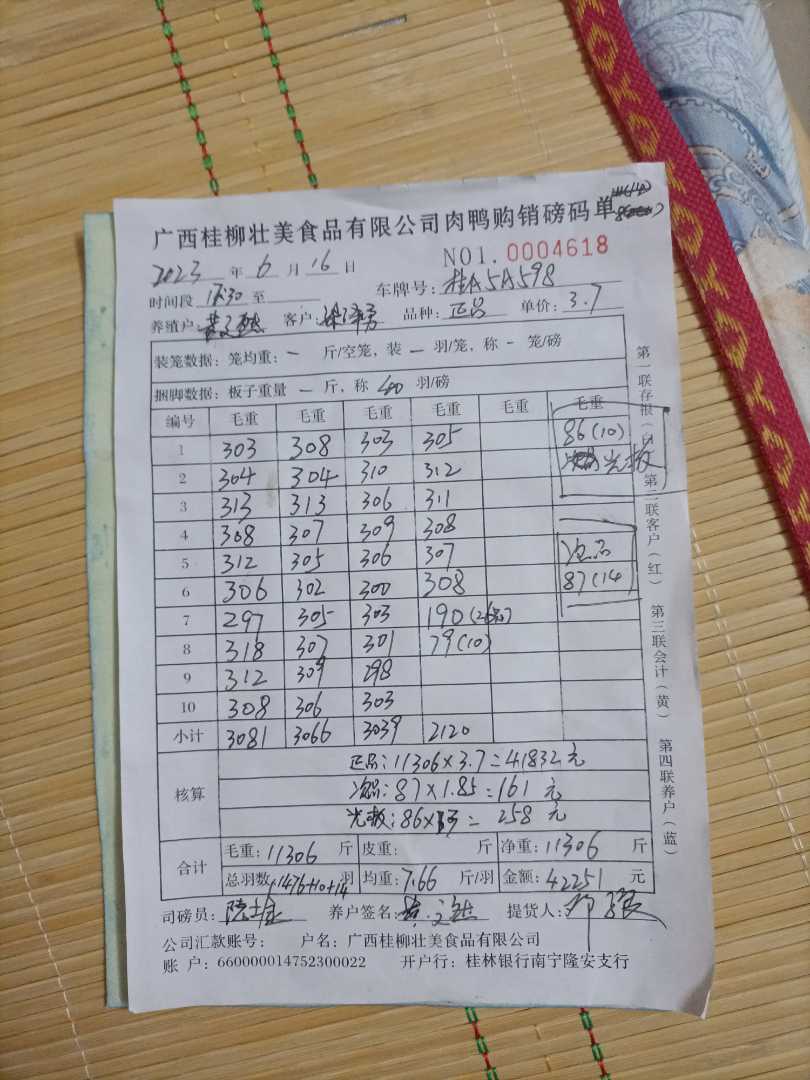 广西桂柳壮美食品有限公司肉鸭购销磅码单
NO1. 0004618
2023 年 6 月 16 日
时间段 18:30 至 车牌号: 桂A5A598
养殖户: 客户: 品种: 正品 单价: 3.7
装笼数据: 笼均重: 一 斤/空笼, 装 一 羽/笼, 称 - 笼/磅
捆脚数据: 板子重量 一 斤, 称 40 羽/磅
编号 毛重 毛重 毛重 毛重 毛重 毛重
1 303 308 303 305 86(10)
2 304 304 310 312 光板
3 313 313 306 311
4 308 307 309 308
5 312 305 306 307 次品
6 306 302 300 308 87(14
7 297 305 303 190(26只)
8 318 307 301 79(10)
9 312 309 298
10 308 306 303
小计 3081 3066 3039 2120
核算
正品:11306×3.7=41832元
次品:87×1.85=161 元
光板:86×3=258 元
合计
毛重: 11306 斤 皮重: 斤 净重: 11306 斤
总羽数 1476+10+14 羽 均重: 7.66 斤/羽 金额: 42251 元
司磅员: 养户签名: 提货人:
公司汇款账号: 户名: 广西桂柳壮美食品有限公司
账 户: 660000014752300022 开户行: 桂林银行南宁隆安支行
第一联存根(白) 第二联客户(红) 第三联会计(黄) 第四联养户(蓝)